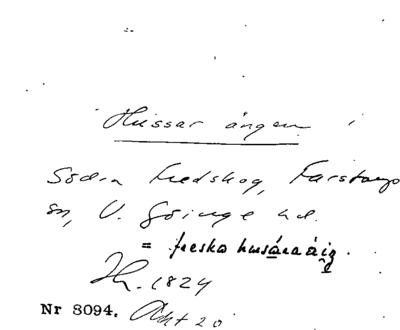 Hussar ängen i
Södra Fredskog, Färstorps
sn, V. Göinge hd.
= freska husáraáig.
Jh. 1824
Nr 8094. Akt 20